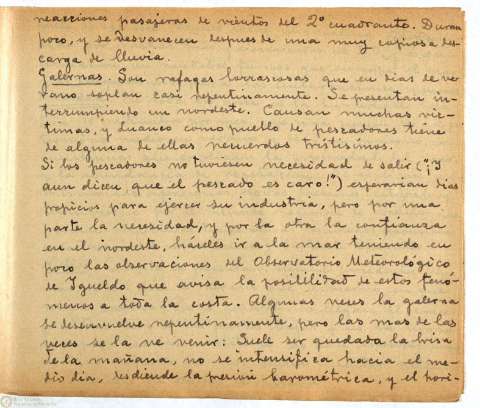 reacciones pasajeras de vientos del 2º cuadrante. Duran
poco, y se desvanecen despues de una muy copiosa des-
carga de lluvia.
Galernas. Son rafagas borrascosas que en dias de ve-
rano soplan casi repentinamente. Se presentan in-
terrumpiendo un nordeste. Causan muchas vic-
timas, y Luanco como pueblo de pescadores tiene
de alguna de ellas recuerdos tristísimos.
Si los pescadores no tuviesen necesidad de salir ("¡Y
aun dicen que el pescado es caro!") esperarian dias
propicios para ejercer su industria, pero por una
parte la necesidad, y por la otra la confianza
en el nordeste, háceles ir a la mar teniendo en
poco las observaciones del Observatorio Meteorológico
de Igueldo que avisa la posibilidad de estos fenó-
menos a toda la costa. Algunas veces la galerna
se desenvuelve repentinamente, pero las mas de las
veces se la ve venir: Suele ser quedada la brisa
de la mañana, no se intensifica hacia el me-
dio dia, desciende la presión barométrica, y el hori-